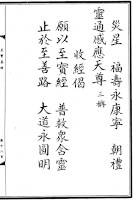 災星 福壽永康寧 朝禮
靈通感應天尊 三拜
收經偈
願以至寶經 普救衆含靈
止於至善路 大道永圓明